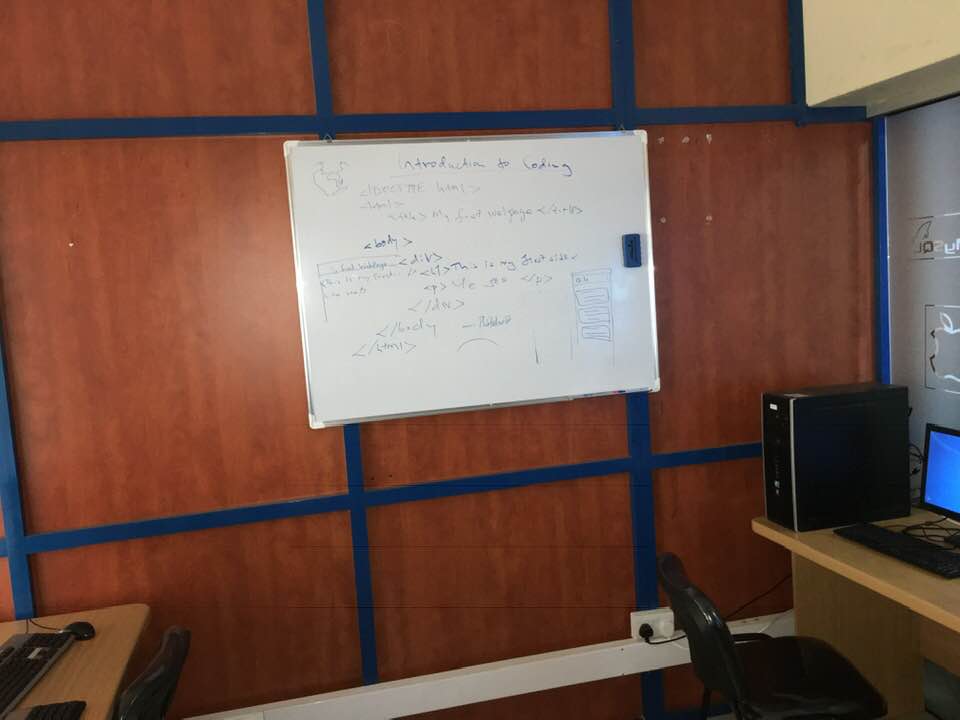 Introduction to Coding
<!DOCTYPE html>
<html>
<title> My first webpage </title>
<body>
<div>
<h1>This is my first side <
<p> Yes </p>
</div>
</body
</html>
This is my first
MySQL